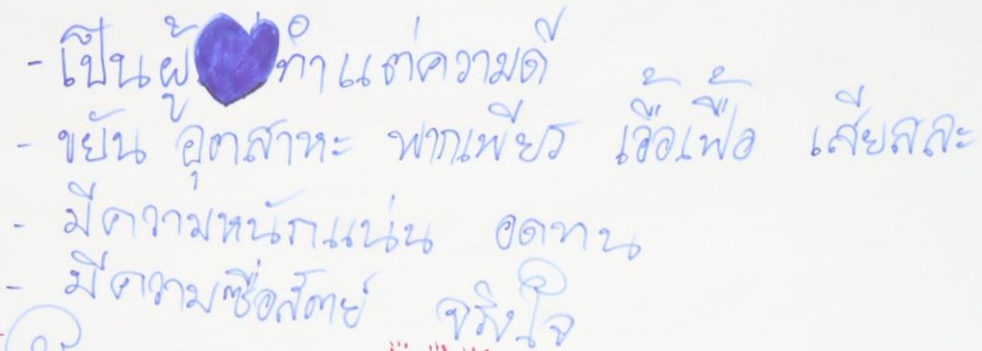 - เป็นผู้ทำแต่ความดี
- ขยัน อุตสาหะ พากเพียร เอื้อเฟื้อ เสียสละ
- มีความหนักแน่น อดทน
- มีความซื่อสัตย์ จริงใจ